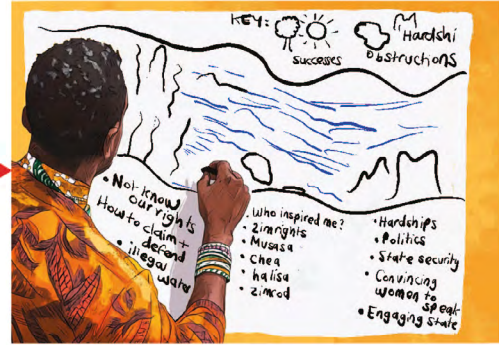 KEY:
successes
Hardshi
Obstructions
• Not know
our rights
How to claim +
defend
• illegal
water
• Who inspired me?
• Zimrights
• Musasa
• Chea
• halisa
• zimcod
• Hardships
• Politics
• State security
• Convincing
women to
speak
• Engaging State